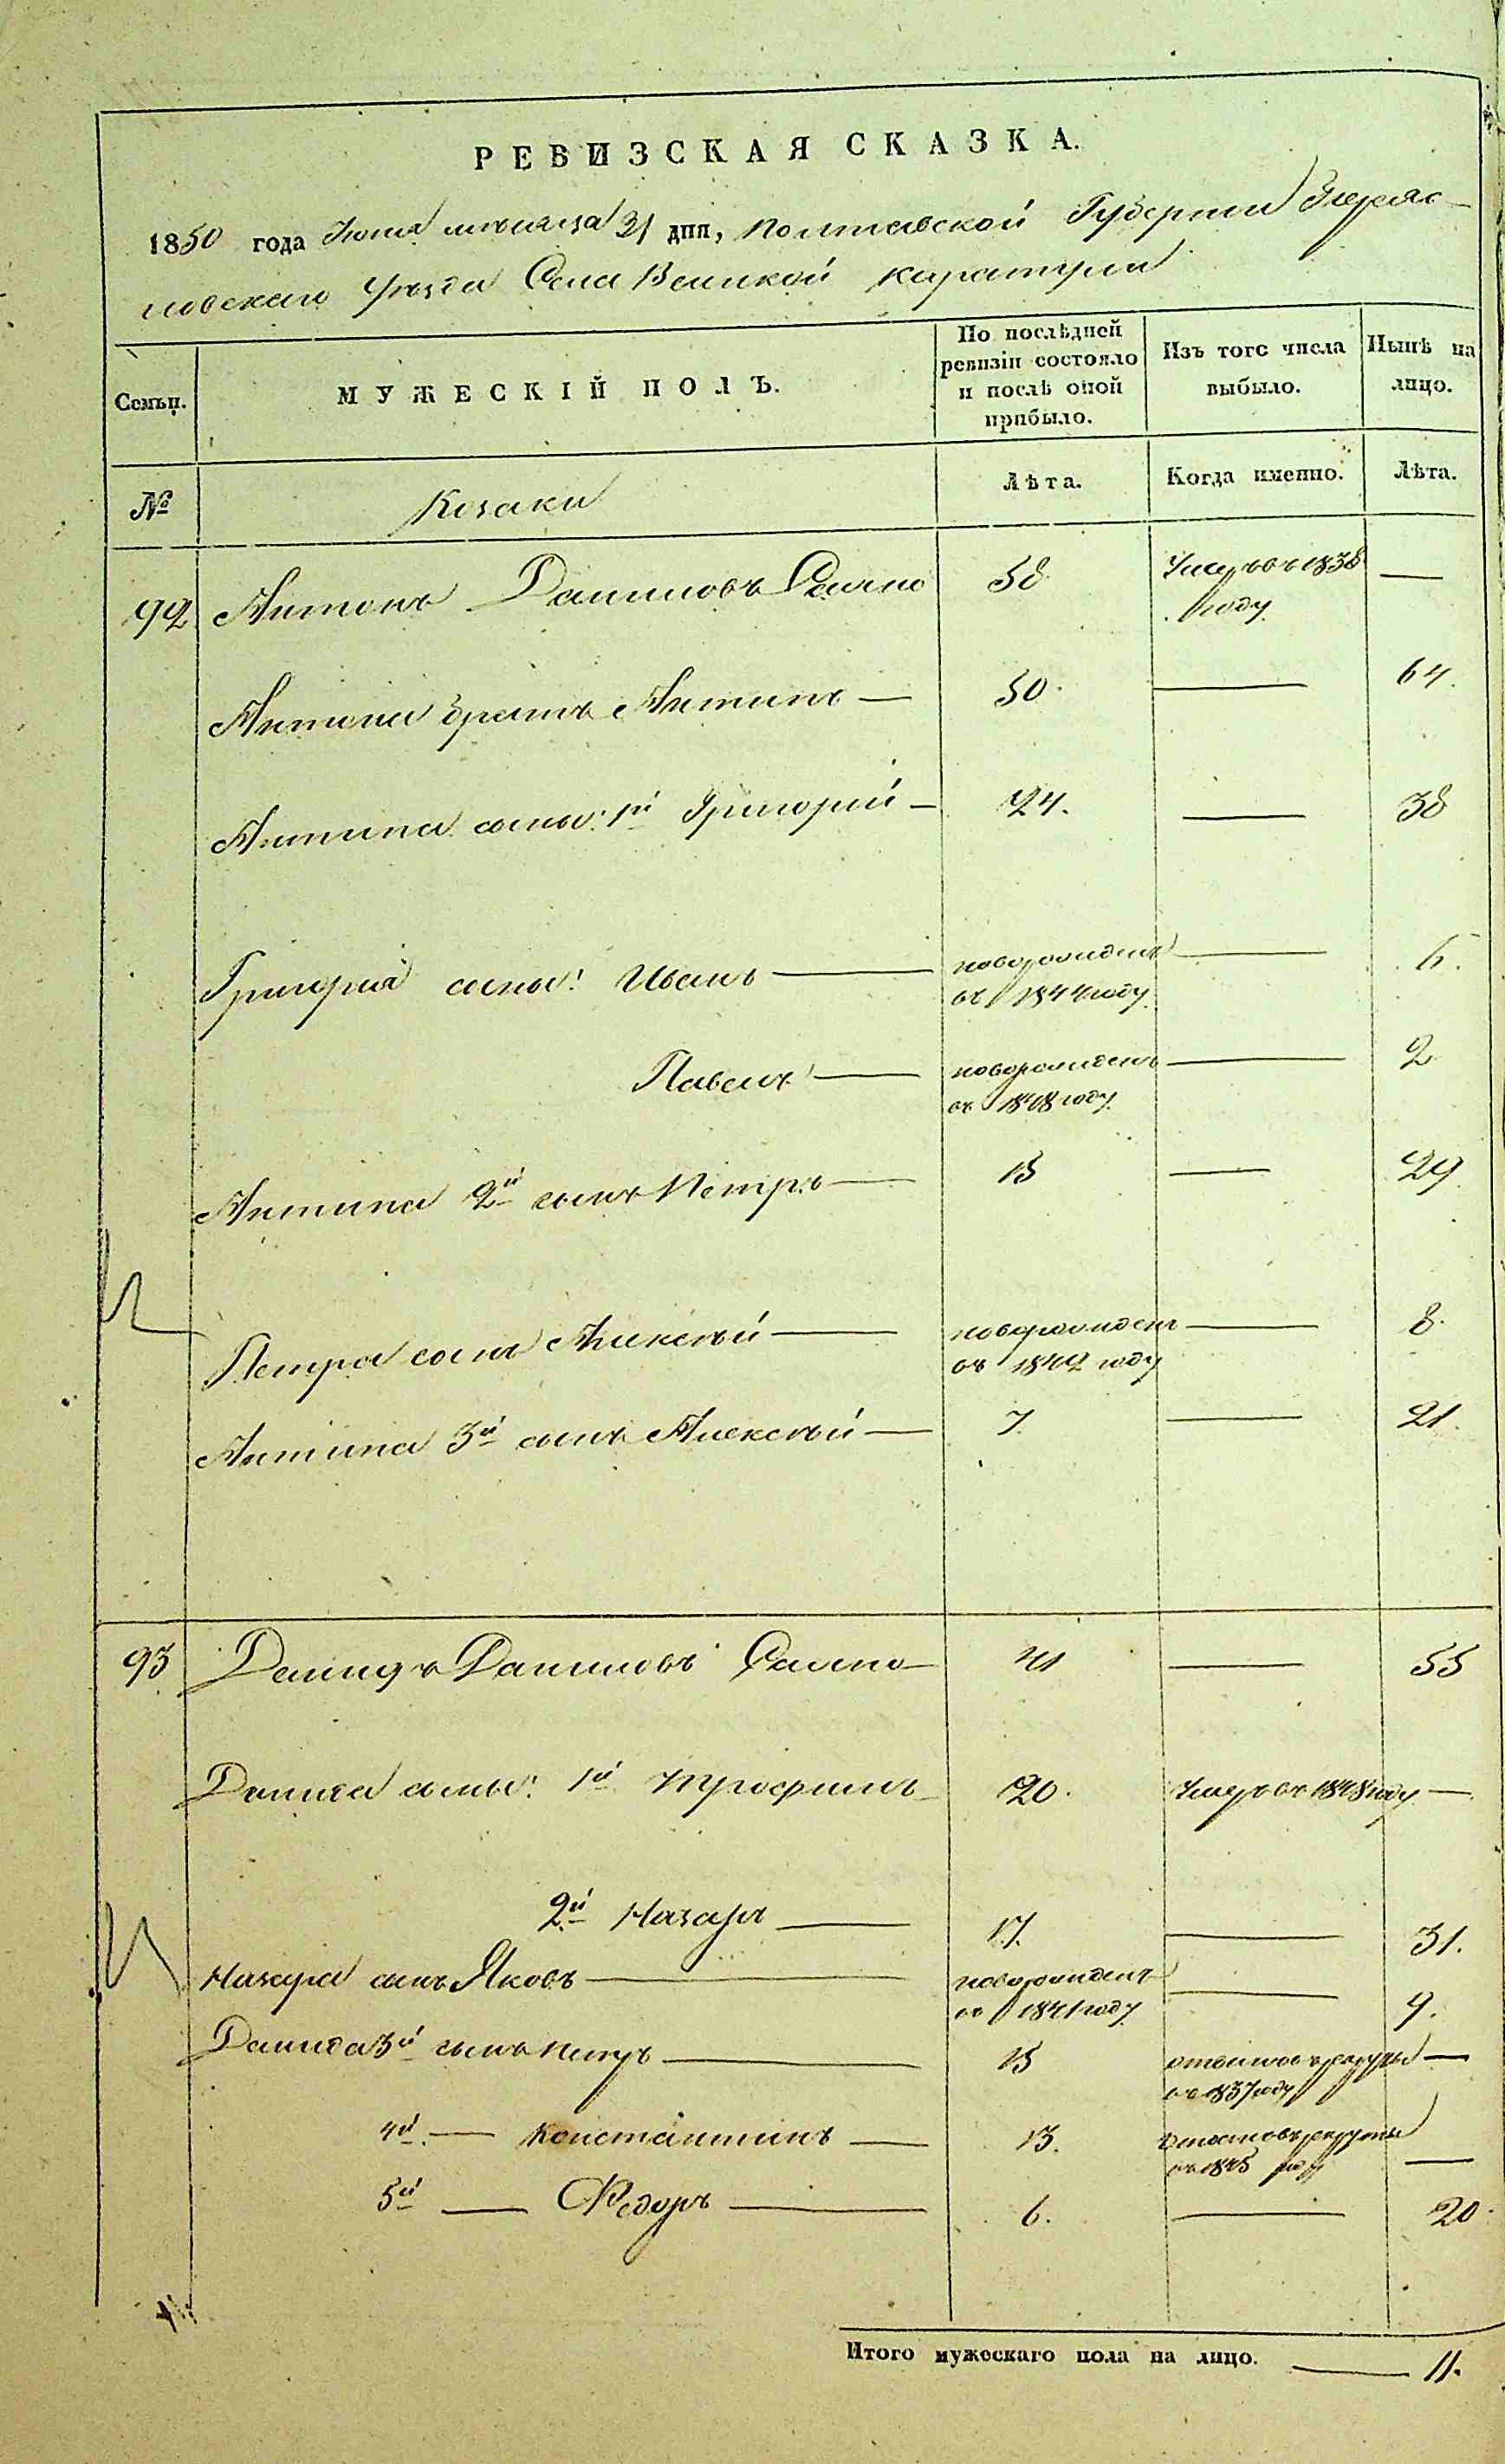 РЕВИЗСКАЯ СКАЗКА.
1850 года Июня мѣсяца 21 дня, Полтавской Губерніи Переяс-
ловскаго Уѣзда Села Великой Каратули
Семьи.
МУЖЕСКІЙ ПОЛЪ.
По послѣдней ревизіи состояло и послѣ оной прибыло.
Изъ того числа выбыло.
Нынѣ на лицо.
№
Козаки
Лѣта.
Когда именно.
Лѣта.
92 Антонъ Даниловъ 58 Умеръ въ 1838 году —
Антона братъ Антипъ — 50. — 64.
Антипа сыны: 1й Григорій — 24. — 38
Григорія сыны: Иванъ — новорожденъ въ 1844 году — 6.
Павелъ — новорожденъ въ 1848 году. — 2
Антипа 2й сынъ Петръ — 15 — 29.
Петра сынъ Алексѣй — новорожденъ въ 1842 году — 8.
Антипа 3й сынъ Алексѣй — 7. — 21.
93 Демидъ Даниловъ 41 — 55
Демида сыны: 1й Трофимъ — 20. Умеръ въ 1848 году —
2й Назаръ — 17. — 31.
Назара сынъ Яковъ — новорожденъ въ 1841 году — 9.
Демида 3й сынъ Петръ — 15 отданъ въ рекруты въ 1837 году —
4й — Константинъ — 13. отданъ въ рекруты въ 1845 году —
5й — Федоръ — 6. — 20.
Итого мужескаго пола на лицо. — 11.